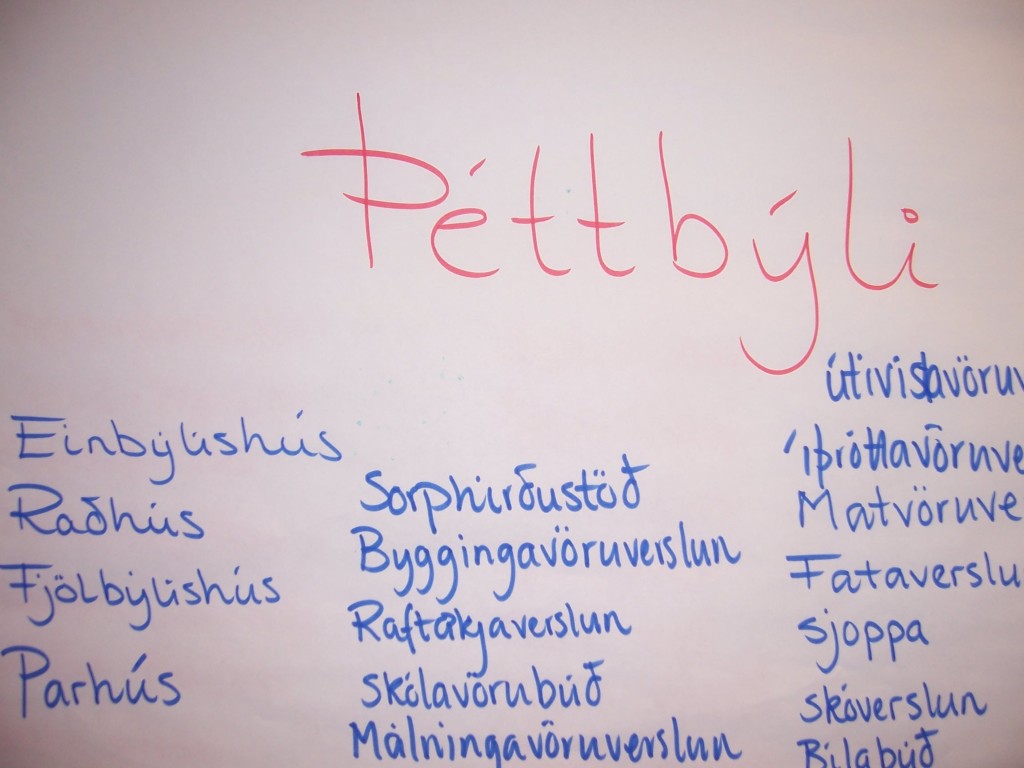 Þéttbýli
Einbýlishús
Raðhús
Fjölbýlishús
Parhús
Sorphirðustöð
Byggingavöruverslun
Raftækjaverslun
Skólavörubúð
Málningavöruverslun
útivistavöruv
íþróttavöruve
Matvöruve
Fataverslu
sjoppa
skóverslun
Bílabúð